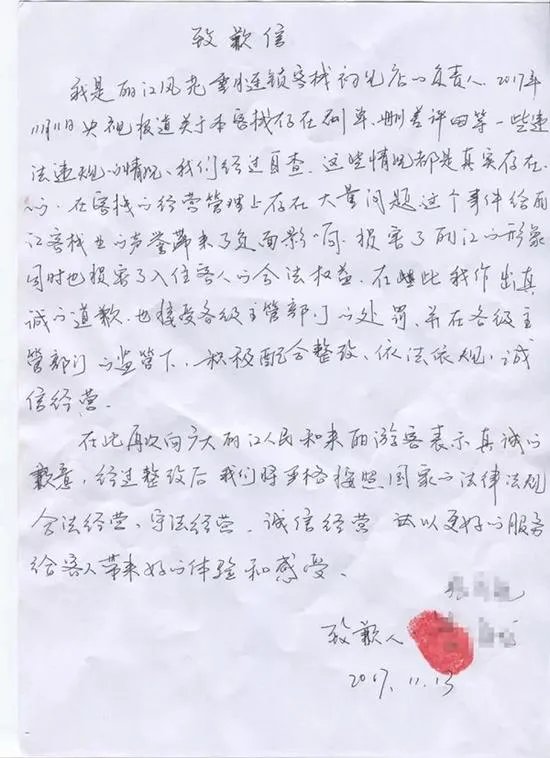 致歉信
我是丽江风花雪月连锁客栈初见店的负责人. 2017年
11月11日央视报道关于本客栈存在刷单、删差评的等一些违
法违规的情况、我们经过自查. 这些情况都是真实存在
的. 在客栈的经营管理上存在大量问题这个事件给丽
江客栈业的声誉带来了负面影响. 损害了丽江的形象
同时也损害了入住客人的合法权益. 在此我作出真
诚的道歉. 也接受各级主管部门的处罚、并在各级主
管部门的监管下、积极配合整改、依法依规, 诚
信经营.
在此再次向广大丽江人民和来丽游客表示真诚的
歉意, 经过整改后我们将严格按照国家的法律法规
合法经营、守法经营. 诚信经营 以更好的服务
给客人带来好的体验和感受、
致歉人
2017. 11. 13